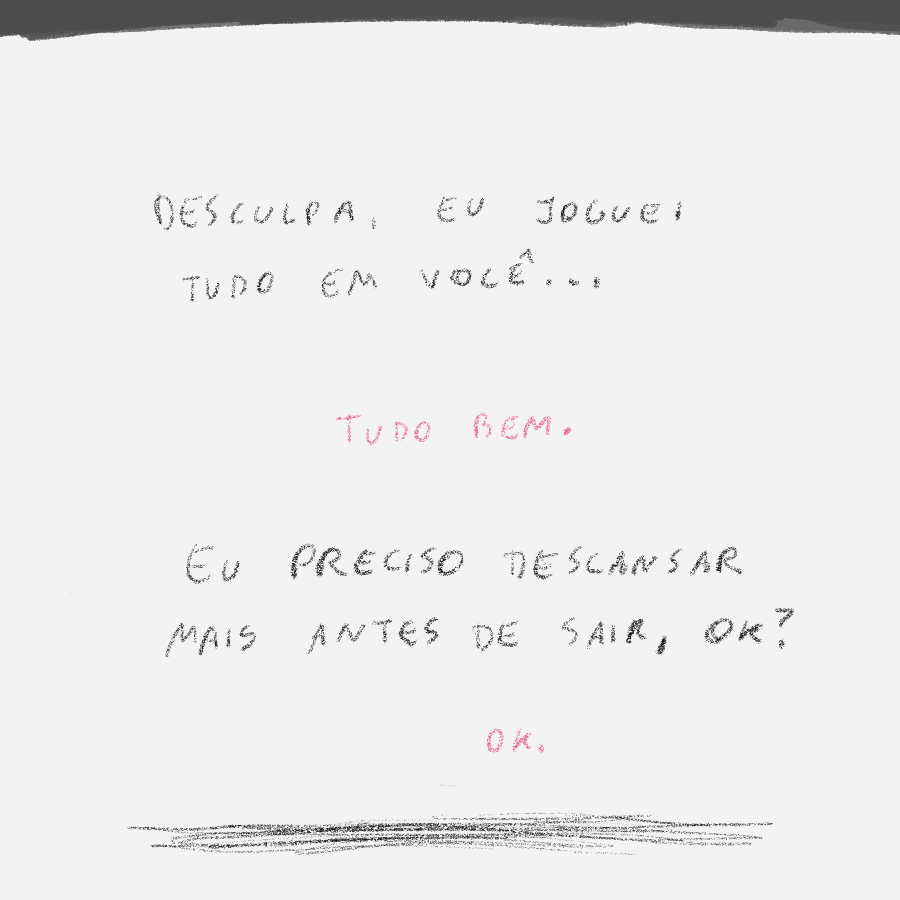 DESCULPA, EU JOGUEI
TUDO EM VOCÊ...
TUDO BEM.
EU PRECISO DESCANSAR
MAIS ANTES DE SAIR, OK?
OK.